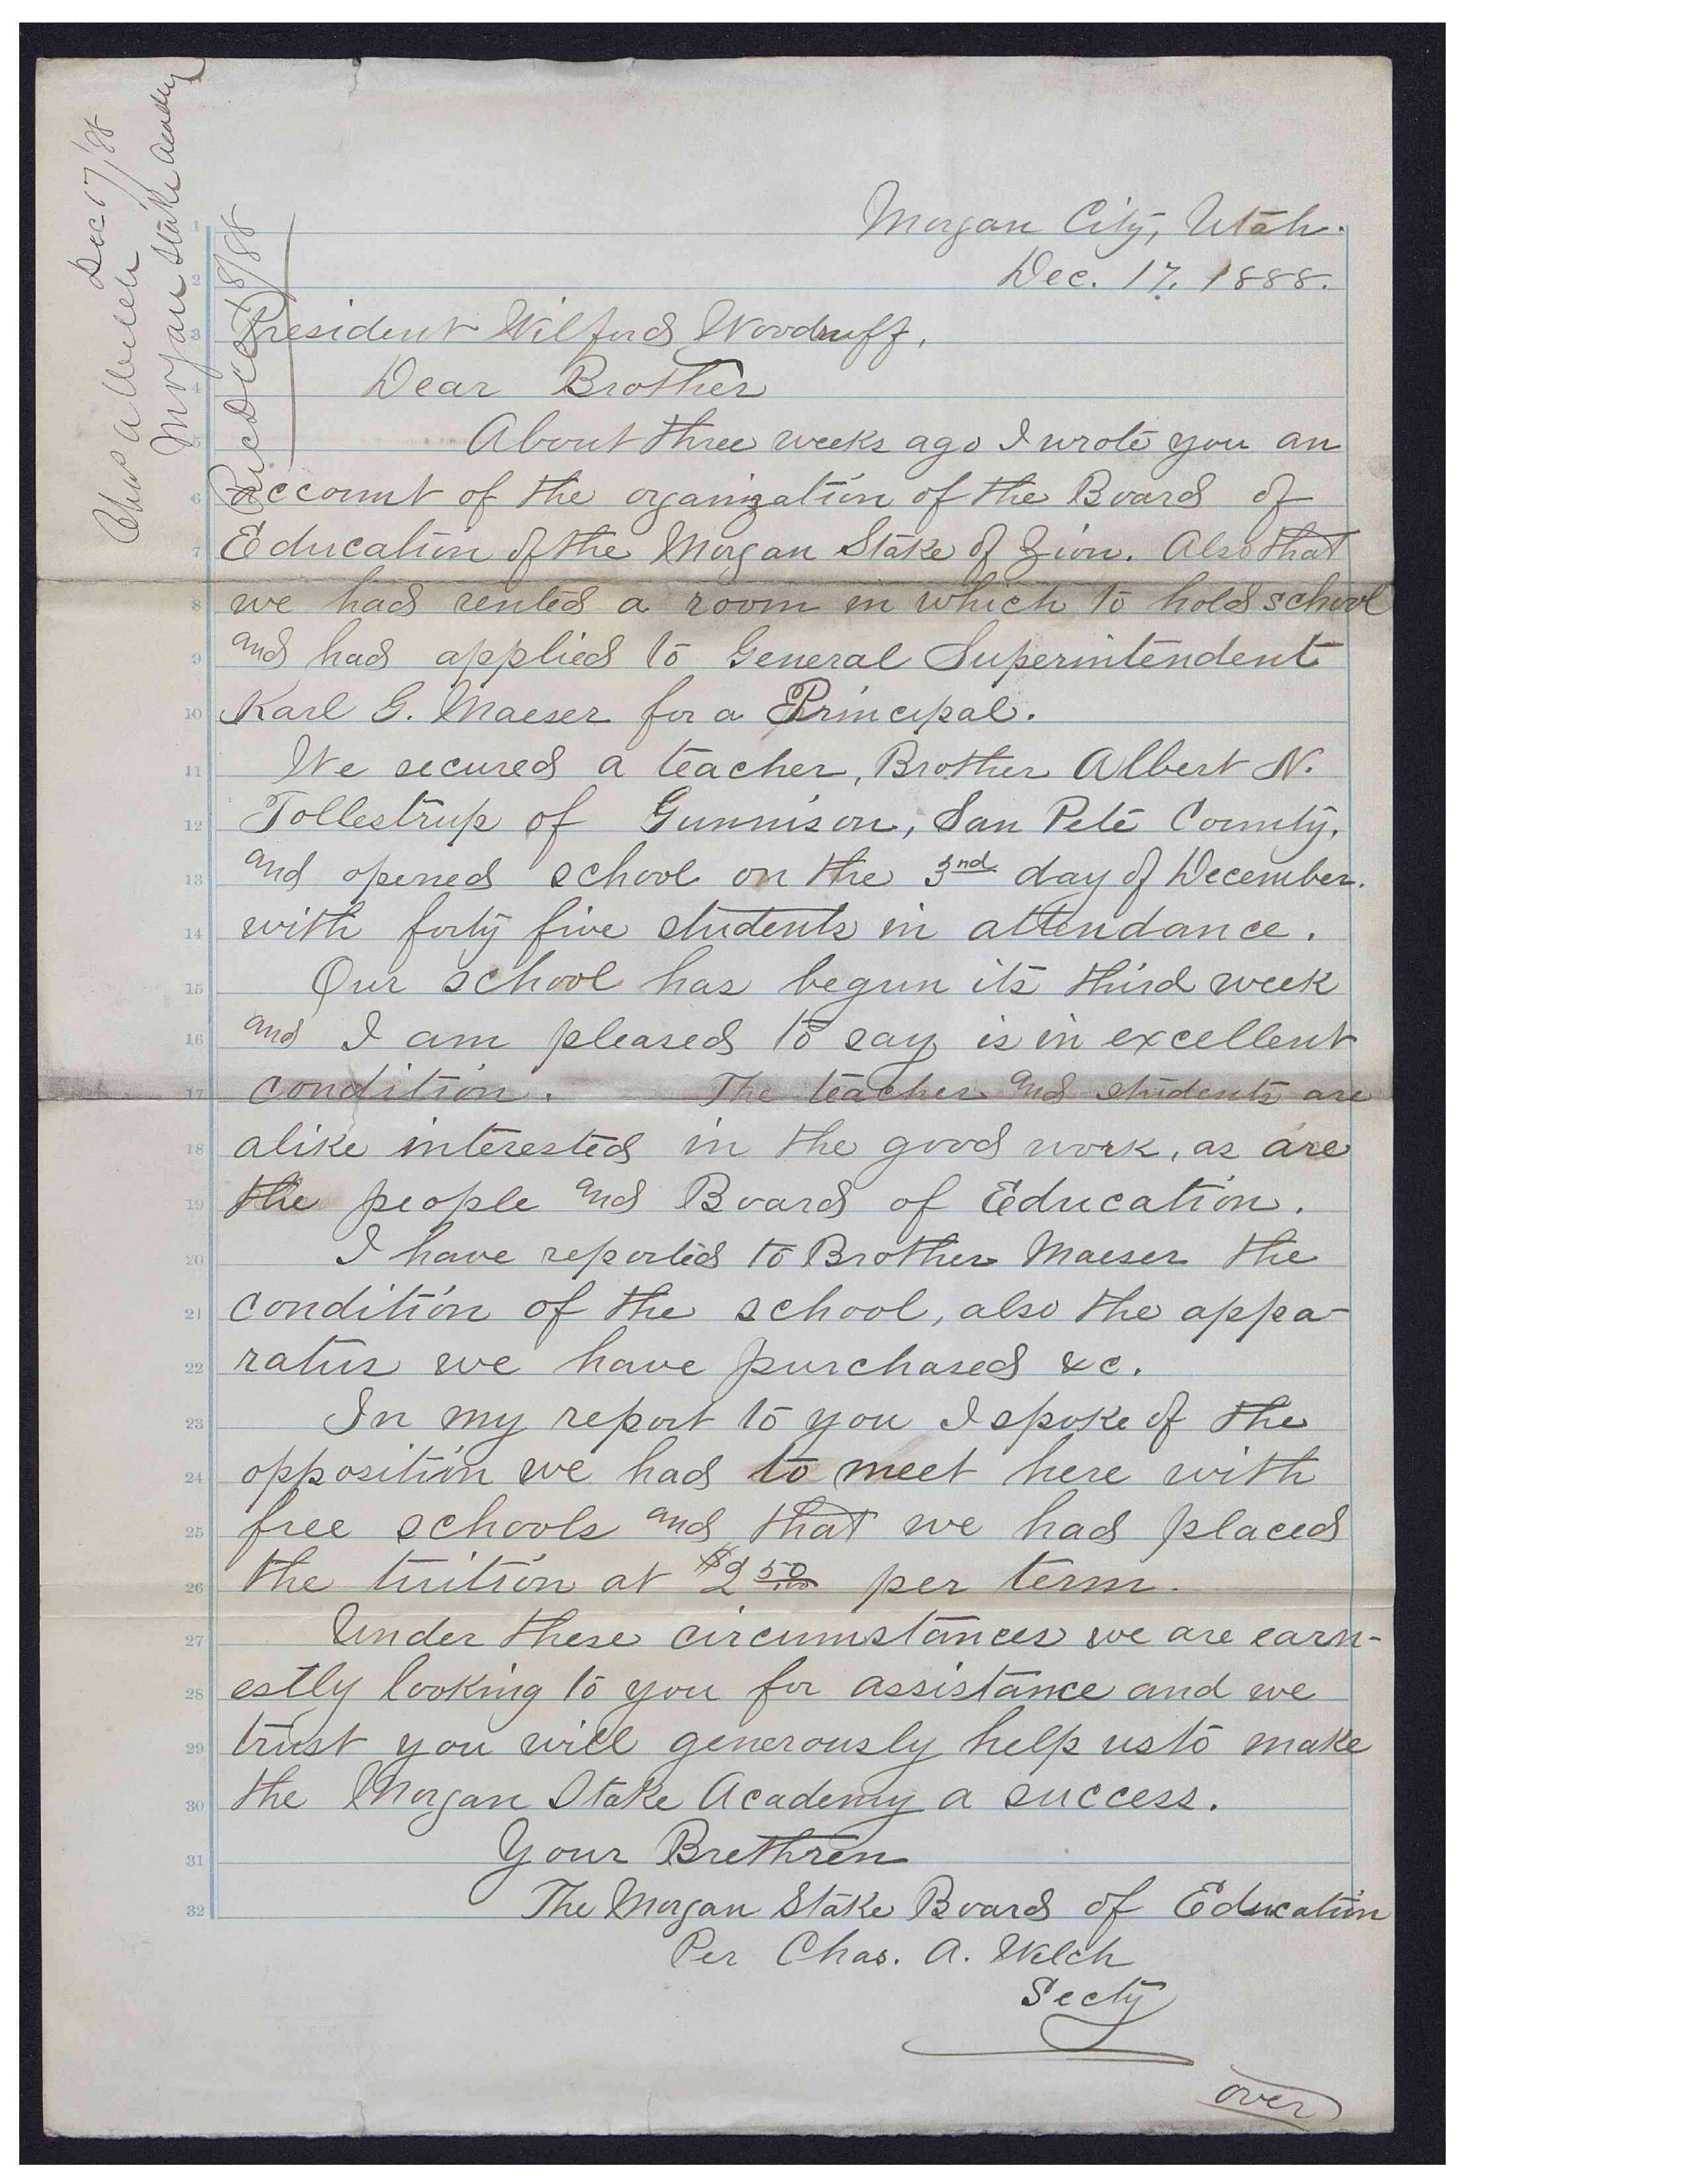 Chas A Welch
Dec 17/88
Morgan Stake Academy
Rec Dec 18/88
Morgan City, Utah.
Dec. 17, 1888.
President Wilford Woodruff,
Dear Brother
About three weeks ago I wrote you an
account of the organization of the Board of
Education of the Morgan Stake of Zion. Also that
we had rented a room in which to hold school
and had applied to General Superintendent
Karl G. Maeser for a Principal.
We secured a teacher, Brother Albert N.
Tollestrup of Gunnison, San Pete County,
and opened school on the 3nd day of December.
with forty five students in attendance.
Our school has begun its third week
and I am pleased to say is in excellent
condition. The teacher and students are
alike interested in the good work, as are
the people and Board of Education.
I have reported to Brother Maeser the
condition of the school, also the appa-
ratus we have purchased &c.
In my report to you I spoke of the
opposition we had to meet here with
free schools and that we had placed
the tuition at $2 50/100 per term.
Under these circumstances we are earn-
estly looking to you for assistance and we
trust you will generously help us to make
the Morgan Stake Academy a success.
Your Brethren
The Morgan Stake Board of Education
Per Chas. A. Welch
Secty
over
1
2
3
4
5
6
7
8
9
10
11
12
13
14
15
16
17
18
19
20
21
22
23
24
25
26
27
28
29
30
31
32